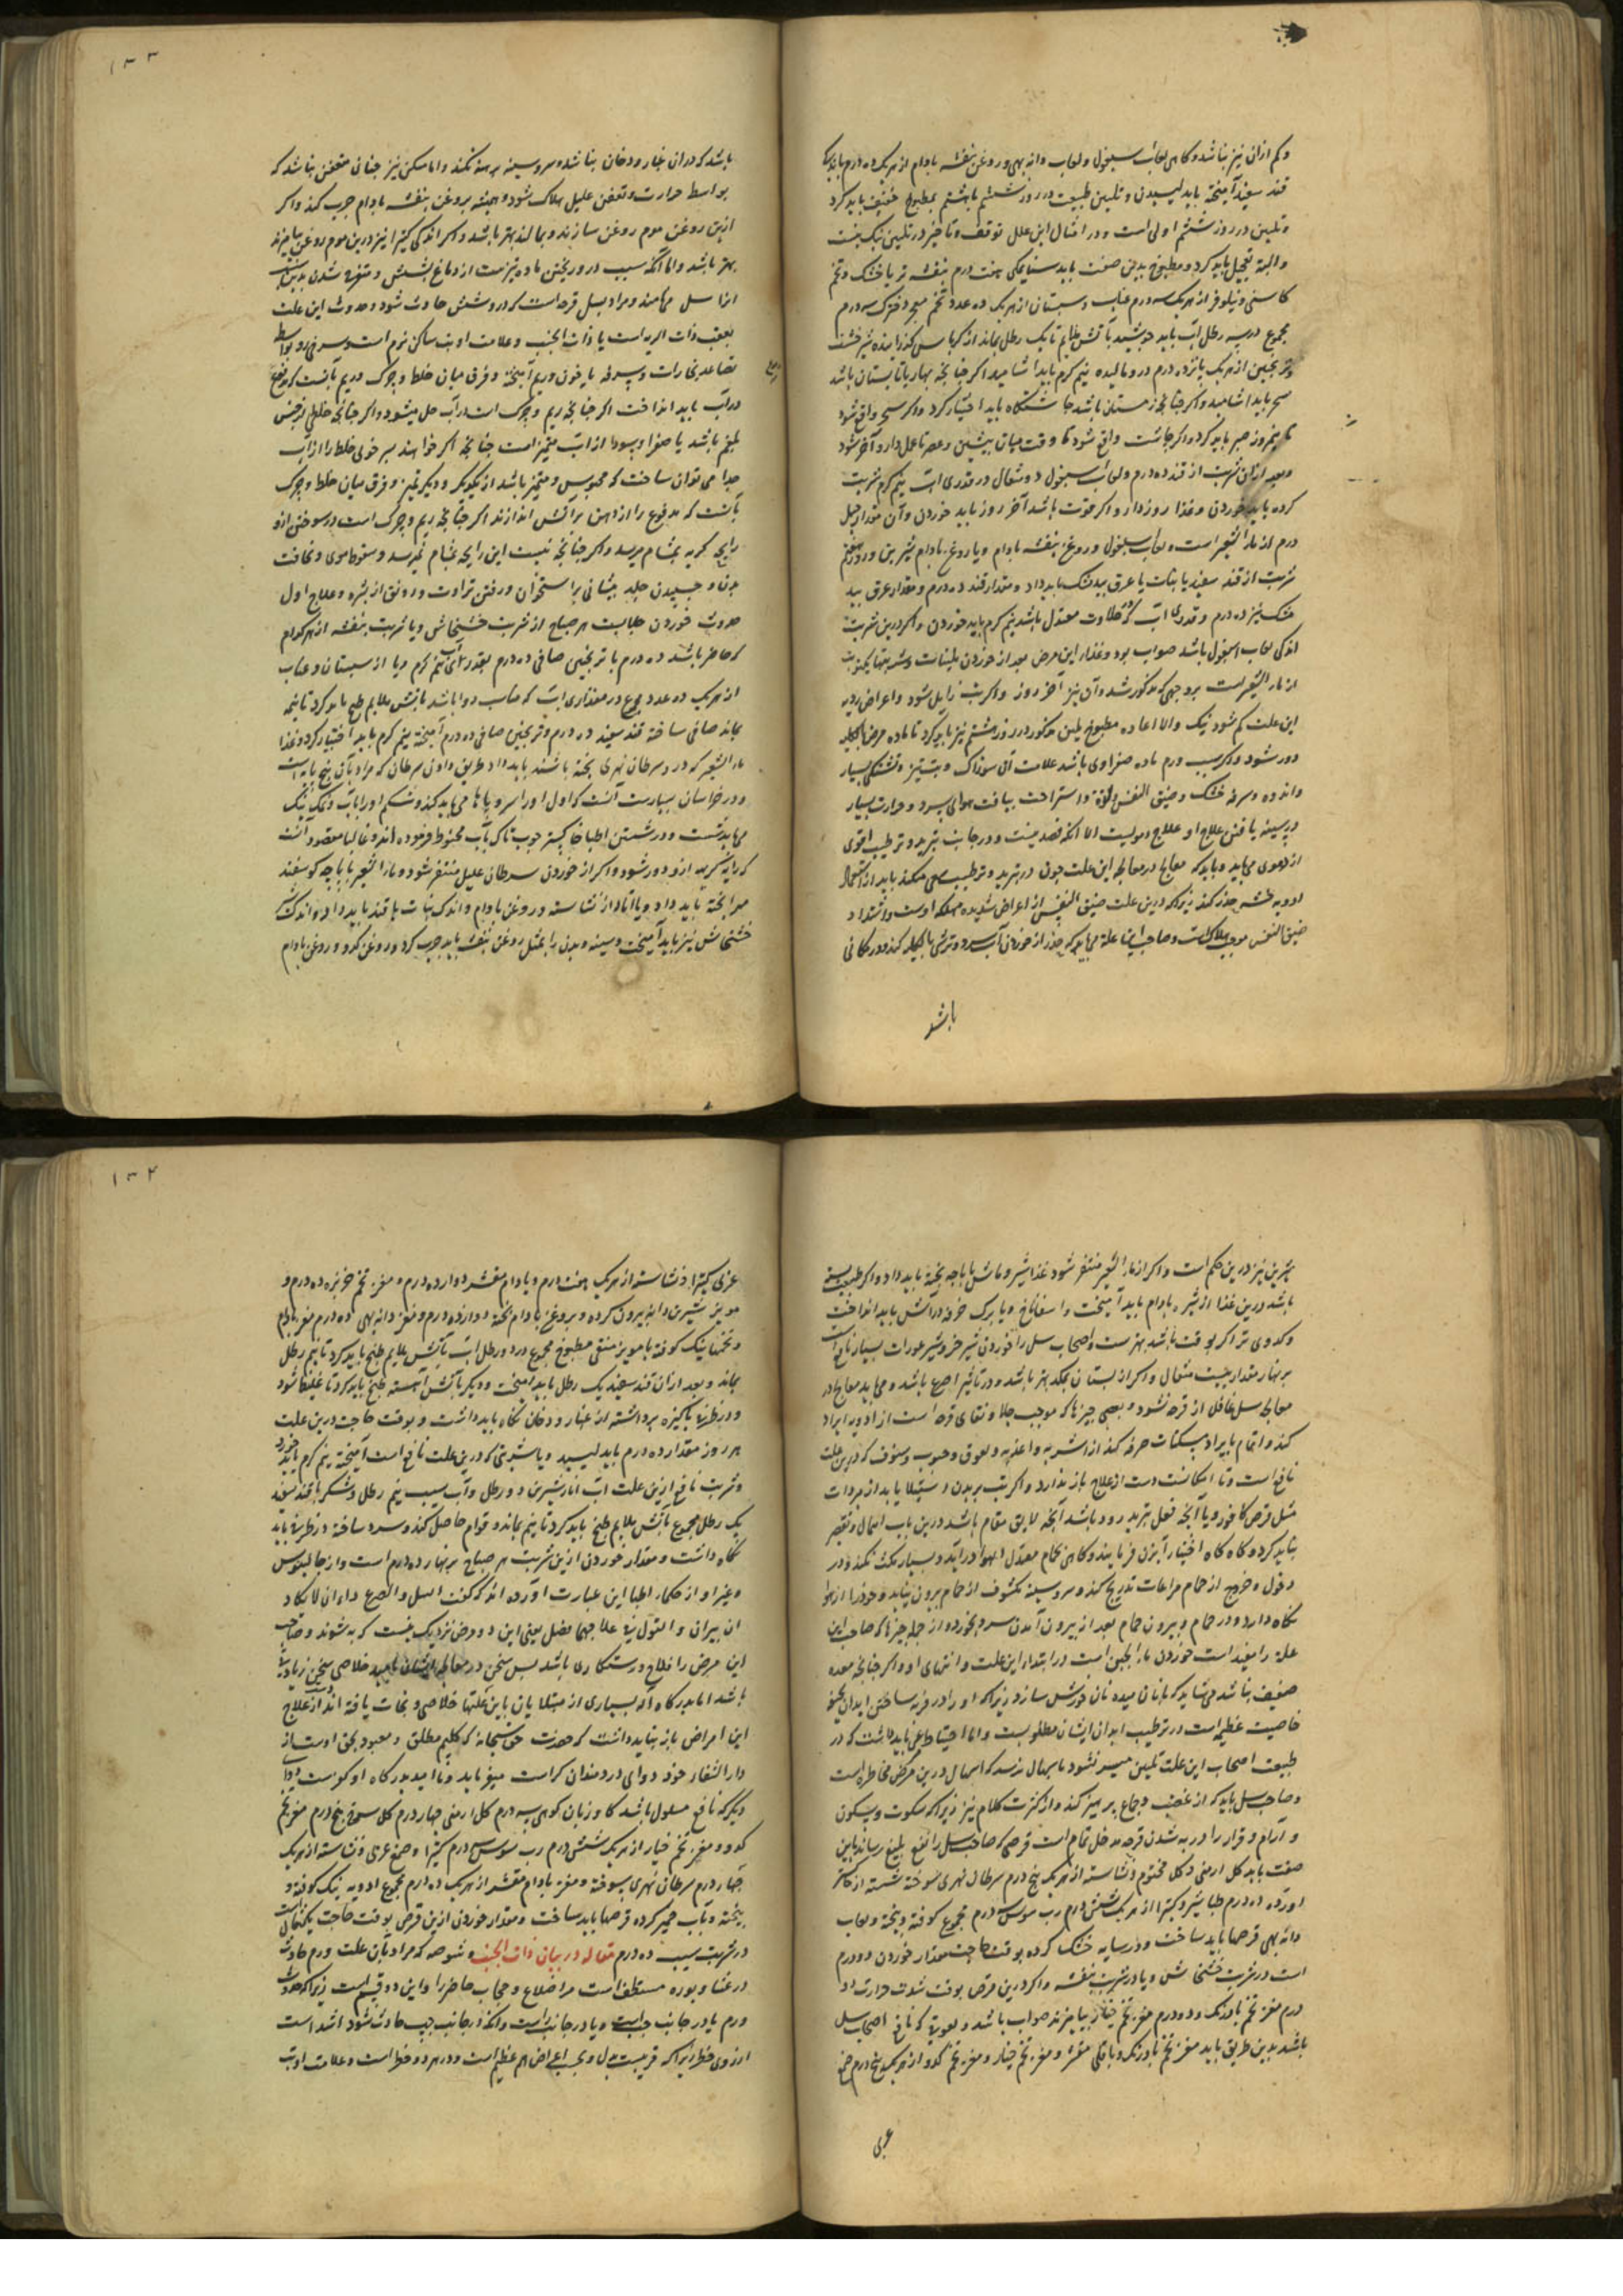 ۱۳۳
و کم ازان نیز نباشد و کاهی لعاب اسبغول و لعاب دانه بهی و روغن بنفشه بادام از هر یک ده درم با
قند سفید آمیخته باید لیسیدن و تلیین طبیعت در روز ششم یا هشتم بمطبوخ خفیف باید کرد
و تلیین در روز ششم اولی است و در امثال این علل توقف و تاخیر در تلیین نیک نیست
و البته تعجیل باید کرد و مطبوخ بدین صفت باید سنای مکی هفت درم بنفشه تر یا خشک و تخم
کاسنی و نیلوفر از هر یک سه درم عناب و سبستان از هر یک ده عدد تخم سه درم
مجموع در سه رطل آب باید جوشید بآتش ملایم تا یک رطل بماند از کرباس گذرانیده شیر خشت
و ترنجبین از هر یک پانزده درم درو مالیده نیم گرم باید آشامید اگر چنانچه بهار یا تابستان باشد
سحر باید آشامید و اگر چنانچه زمستان باشد چاشتگاه باید اختیار کرد و اگر سحر واقع شود
تا نیمروز صبر باید کرد و اگر چاشت واقع شود تا وقت میان پیشین و عصر تا عمل دارو آخر شود
و بعد ازان شربت از قند ده درم و لعاب اسبغول دو مثقال در قدری آب نیم گرم شربت
کرده باید خوردن و غذا روز دارو اگر قوت باشد آخر روز باید خوردن و آن مقدار چهل
درم از ماء الشعیر است و لعاب اسبغول و روغن بنفشه بادام و یا روغن بادام شیرین و در روز هفتم
شربت از قند سفید یا نبات با عرق بیدمشک باید داد و مقدار قند ده درم و مقدار عرق بید
مشک نیز ده درم و قدری آب که حلاوت معتدل باشد نیم گرم باید خوردن و اگر درین شربت
اندکی لعاب اسبغول باشد صواب بود و غذاء این مرض بعد از خوردن ملینات و شربتها یکنوبت
از ماء الشعیر است بر وجهی که مذکور شد و آن نیز آخر روز و اگر تب زایل شود و اعراض ردیه
این علت کم شود نیک و الا اعاده مطبوخ ملین مذکور در روز هشتم نیز باید کرد تا ماده مرض بالکلیه
دور شود و اگر سبب ورم ماده صفراوی باشد علامت آن سوزاک و تب تیز و تشنگی بسیار
و اندوه و سرفه خشک و ضیق النفس بقوة و استراحت بیافت هوای سرد و حرارت بسیار
در سینه یافتن علاج او علاج دمویست الا آنکه فصد نیست و در جانب تبرید و ترطیب اقوی
از دموی می باید و باید که معالج در معالجه این علت چون در تبرید و ترطیب سعی میکند باید از استعمال
ادویه حذر کند زیرا که درین علت ضیق النفس از اعراض شدیده مهلکه اوست و اشتداد
ضیق النفس موجب هلاکست و صاحب این علة می باید که حذر از خوردن آب سرد و ترشی بالکلیه کند و در مکانی
باشد
باشد که دران غبار و دخان نباشد و سر و سینه برهنه نکند و اما مسکن نیز چنان متعفن نباشد که
بواسط حرارت و تعفن علیل هلاک شود و همیشه بروغن بنفشه بادام چرب کند و اگر
ازین روغن موم روغن سازند و بمالند بهتر باشد و اگر اندکی کتیرا نیز درین موم روغن بیامیزند
بهتر باشد و اما آنکه سبب درو ریختن ماده تیزست از دماغ بشش و متقرح شدن
انرا سل می نامند و مراد بسل قرحه است که در شش حادث شود و حدوث این علت
بعقب ذات الریه است یا ذات الجنب و علامت او تب ساکن نرم است و سرخی رو بواسط
تصاعد بخارات و سرفه با خون و ریم آمیخته و فرق میان خلط و چرک و ریم بآنست که مدفوع
در آب باید انداخت اگر چنانچه ریم و چرک است در آب حل میشود و اگر چنانچه خلطی از جنس
بلغم باشد یا صفرا و سودا از آب متمیز است چنانچه اگر خواهند سر خونی خلط را از آب
جدا می توان ساخت که محسوس و متمیز باشد از یکدیگر و دیگر تمیز و فرق میان خلط و چرک
بآنست که مدفوع را از دهن بر آتش اندازند اگر چنانچه ریم و چرک است در سوختن ازو
رایحه کریه بمشام میرسد و اگر چنانچه نیست این رایحه بمشام نمیرسد و سقوط موی و نحافت
بدن و چسپیدن جلد پیشانی بر استخوان و رفتن تراوت و رونق از بشره و علاج اول
حدوث خوردن جلابست هر صباح از شربت خشخاش و یا شربت بنفشه از هر کدام
که حاضر باشد ده درم با ترنجبین صافی ده درم بقدر آبی نیم گرم و یا از سبستان و عناب
از هر یک ده عدد مجموع در مقداری آب که مناسب دوا باشد بآتش ملایم طبخ باید کرد تا نیمه
بماند صافی ساخته قند سفید ده درم و ترنجبین صافی ده درم آمیخته نیم گرم باید اختیار کرد و غذا
ماء الشعیر که درو سرطان نهری پخته باشند باید داد طریق دادن سرطان که مراد بآن پنج پایه است
و در خراسان بسیارست آنست که اول او را سر و پاها می باید کند و شکم او را بآب و نمک نیک
می باید شست و در شستن اطبا خاکستر چوب تاک بآب مخلوط فرموده اند و غالبا مقصود آنست
که رایحه کریه ازو دور شود و اگر از خوردن سرطان علیل متنفر شود و ماء الشعیر با پاچه گوسفند
مهرا پخته باید داد و یا آنک از نشاسته و روغن بادام و اندک نبات یا قند باید داد و اندک شیره
خشخاش نیز باید آمیخت و سینه و بدن را بمثل روغن بنفشه باید چرب کرد و روغن کدو و روغن بادام
۱۳۴
شیرین نیز درین حکم است و اگر از ماء الشعیر متنفر شود غذا شیر و ماش با پاچه پخته باید داد و اگر طبیعت بسته
باشد درین غذا از شیره بادام باید آمیخت و اسفاناخ و یا برک خرفه در آتش باید انداخت
و کدوی تر اگر بوقت باشد بهترست و اصحاب سل را خوردن شیر خر و شیر عورات بسیار نافع است
بر نهار مقدار بیست مثقال و اگر از پستان بمکد بهتر باشد و در تاثیر اصح باشد و می باید معالج در
معالجه سل غافل از قرحه نشود و بعضی چیزها که موجب جلا و نقای قرحه است از ادویه ایراد
کند و اتمام بایراد مسکنات حرفه کند از اشربه و اغذیه و لعوق و حبوب و سفوف که درین علت
نافع است و تا امکانست دست از علاج باز ندارد و اگر تب بر بدن استیلا یابد از مبردات
مثل قرص کافور و یا آنچه فعل تبرید درو باشد آنچه لایق مقام باشد درین باب اهمال و تقصیر
نباید کرد و گاه گاه اختیار آبزن فرمایند و گاهی بحمام معتدل الهوا درآید و بسیار مکث نکند و در
دخول و خروج از حمام مراعات تدریج کند و سر و سینه مکشوف از حمام برون نیاید و خود را از هوا
نگاه دارد و در حمام و بیرون حمام بعد از بیرون آمدن سرد نخورد و از جمله چیزها که صاحب این
علة را مفید است خوردن ماء الجبن است در ابتداء این علت و انتهای او و اگر چنانچه معده
ضعیف نباشد می شاید که بانان میده نان خورش سازد زیرا که او را در فربه ساختن ابدان نحیفه
خاصیت عظیم است و در ترطیب ابدان ایشان مطلوبست و اما احتیاط مرعی باید داشت که در
طبیعت اصحاب این علت تلیین میسر نشود باسهال نرسد که اسهال درین مرض مخاطره است
و صاحب سل باید که از غضب و جماع پرهیز کند و از کثرت کلام نیز زیرا که سکوت و سکون
و آرام و قرار را در به شدن قرحه مدخل تمام است قرصی که صاحب سل را نفع بلیغ رساند باین
صفت باید گل ارمنی و گل مختوم و نشاسته از هر یک پنج درم سرطان نهری سوخته شسته از خاکستر
آورده ده درم طباشیر و کتیرا از هر یک شش درم رب سوس درم مجموع کوفته و بیخته و لعاب
دانه بهی قرصها باید ساخت و در سایه خشک کرده بوقت حاجت مقدار خوردن دو درم
است در شربت خشخاش و یا در شربت بنفشه و اگر درین قرص بوقت شدت حرارت او
درم مغز تخم بادرنک و دو درم مغز تخم خیار بیامیزند صواب باشد و لعوق که نافع اصحاب سل
باشد بدین طریق باید مغز تخم بادرنک و باقلی مقشر و مغز تخم خیار و مغز تخم کدو از هر یک پنج درم صمغ
عربی
عربی کتیرا و نشاسته از هر یک هفت درم و بادام مقشر دوازده درم و مغز تخم خربزه ده درم و
مویز شیرین دانه بیرون کرده و بروغن بادام پخته دوازده درم و مغز دانه بهی ده درم مغز بادام
و تخمها نیک کوفته با مویز منقی مطبوخ مجموع در دو رطل آب بآتش ملایم طبخ باید کرد تا نیم رطل
بماند و بعد ازان قند سفید یک رطل باید آمیخت و دیگر بآتش آهسته طبخ باید کرد تا غلیظ شود
و در ظرفی پاکیزه برداشته از غبار و دخان نگاه باید داشت و بوقت حاجت درین علت
هر روز مقدار ده درم باید لیسید و یا شربتی که درین علت نافع است آمیخته نیم گرم باید خورد
و شربت نافع ازین علت آب انار شیرین دو رطل و آب سیب نیم رطل و شکر یا قند سفید
یک رطل مجموع بآتش ملایم طبخ باید کرد تا نیم بماند و قوام حاصل کند و سرد ساخته در ظرفی باید
نگاه داشت و مقدار خوردن ازین شربت هر صباح بر نهار ده درم است و از جالینوس
و غیر او از حکماء اطبا این عبارت آورده اند که گفت السل و الصرع داءان لا یکاد
ان یبریان و القول فی علاجهما فضل یعنی این دو مرض نزدیک نیست که به شوند و صاحب
این مرض را فلاح و رستگاری باشد پس سخن در معالجه ایشان بامید خلاصی سخن زیادتی
باشد اما بدرگاه آله بسیاری از مبتلایان باین علتها خلاصی و نجات یافته اند از علاج
این امراض باز نباید داشت که حضرت حق سبحانه که حکیم مطلق و معبود بحق اوست از
دار الشفاء خود دوای دردمندان کرامت میفرماید و نا امید بدرگاه او کو نیست
دیگر که نافع مسلول باشد گاو زبان کوهی سه درم گل ارمنی چهار درم گل سرخ پنج درم مغز تخم
کدو و مغز تخم خیار از هر یک شش درم رب سوس درم کتیرا و صمغ عربی و نشاسته از هر یک
چهار درم سرطان نهری سوخته و مغز بادام مقشر از هر یک ده درم مجموع ادویه نیک کوفته و
بیخته و بآب خمیر کرده قرصها باید ساخت و مقدار خوردن ازین قرص بوقت حاجت یکمثقال است
در شربت سیب ده درم مقاله در بیان ذات الجنب و شوصه که مراد بآن علت ورم حادث
در غشا و بوده مستبطن است مر اضلاع و حجاب حاجز را و این دو قسم است زیرا که حدوث
ورم یا در جانب چپ است و یا در جانب راست و آنکه در جانب چپ حادث شود اشد است
از روی خطر زیرا که قریبست بدل و بحسب اعراض هم عظیم است و در هر دو خطر است و علامت او تب